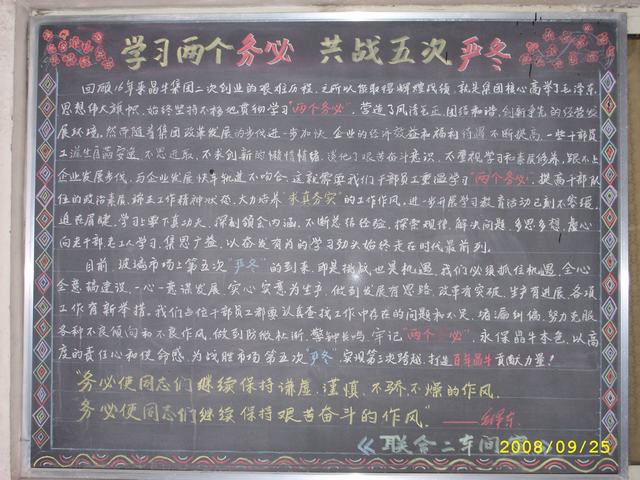 学习两个务必 共战五次严冬
回顾16年来晶牛集团二次创业的艰难历程，之所以能取得辉煌战绩，就是集团核心高举毛泽东
思想伟大旗帜，始终坚持不移地贯彻学习"两个务必"，营造了风清气正，团结和谐，创新争先的经营发
展环境。然而随着集团改革发展的步伐进一步加快，企业的经济效益和福利待遇不断提高，一些干部员
工滋生自满安逸、不思进取、不求创新的懒惰情绪，淡化了艰苦奋斗意识，不重视学习和素质修养，跟不上
企业发展步伐，与企业发展快车轨道不吻合。这就需要我们干部员工重温学习"两个务必"，提高干部队
伍的政治素质，矫正工作精神状态，大力培养"求真务实"的工作作风，进一步开展学习教育活动已刻不容缓，
迫在眉睫，学习上要下真功夫，深刻领会内涵，不断总结经验，探索规律，解决问题，多思多想，虚心
向老干部老工人学习，集思广益，以奋发有为的学习劲头始终走在时代最前列。
目前，玻璃市场上第五次"严冬"的到来，即是挑战也是机遇，我们必须抓住机遇，全心
全意搞建设，一心一意谋发展，实心实意为生产，做到发展有思路，改革有突破，生产有进展，各项
工作有新举措。我们每位干部员工都要认真查找工作中存在的问题和不足，堵漏纠偏，努力克服
各种不良倾向和不良作风，做到防微杜渐，警钟长鸣，牢记"两个务必"，永保晶牛本色，以高
度的责任心和使命感，为战胜市场第五次"严冬"，实现第三次跨越，打造百年晶牛贡献力量！
"务必使同志们继续保持谦虚、谨慎、不骄、不燥的作风，
务必使同志们继续保持艰苦奋斗的作风"——毛泽东
《联合二车间
2008/09/25